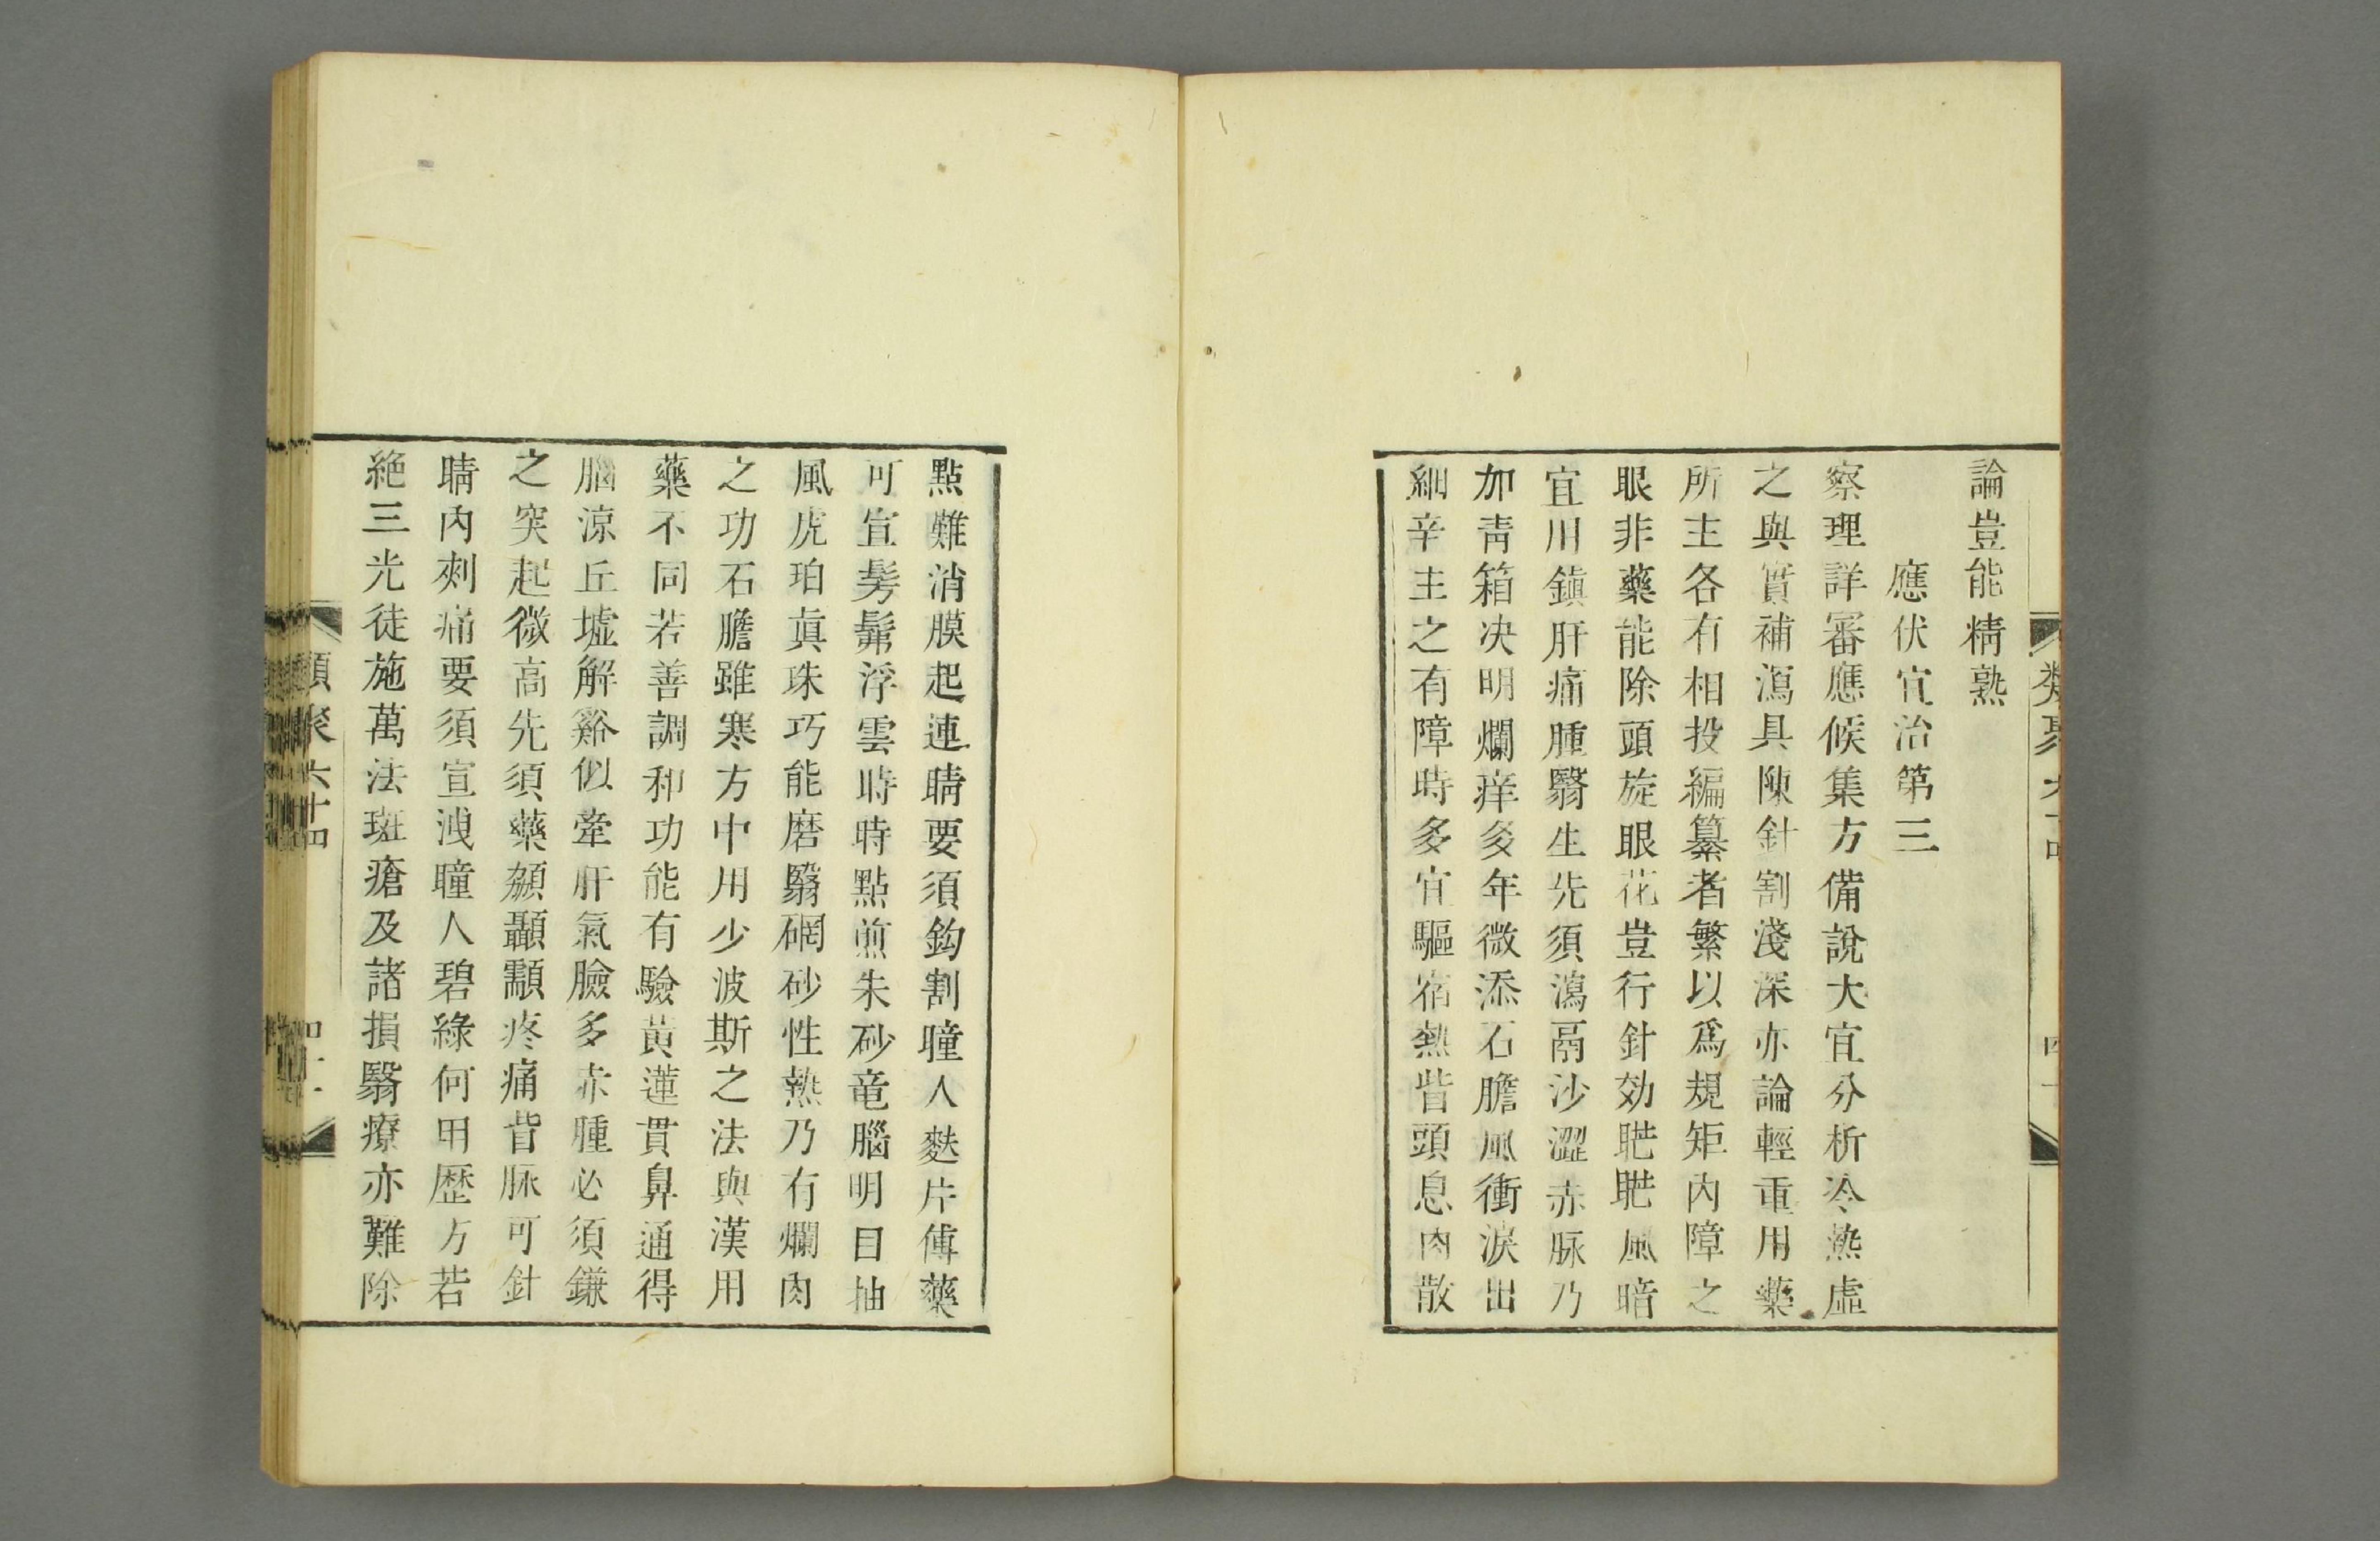 論豈能精熟
應伏宜治第三
察理詳審應候集方備說大宜分析冷熱虛
之與實補瀉具陳針割淺深亦論輕重用藥
所主各有相投編纂者繁以爲規矩內障之
眼非藥能除頭旋眼花豈行針効䀮䀮風暗
宜用鎮肝痛腫翳生先須瀉鬲沙澀赤脉乃
加靑箱决明爛痒多年微添石膽風衝淚出
細辛主之有障時多宜驅宿熱眥頭息肉散
點難消膜起連睛要須鈎割瞳人麩片傅藥
可宜髣髴浮雲時時點煎朱砂竜腦明目抽
風虎珀眞珠巧能磨翳碙砂性熱乃有爛肉
之功石膽雖寒方中用少波斯之法與漢用
藥不同若善調和功能有驗黃蓮貫鼻通得
腦涼丘墟解谿似牽肝氣臉多赤腫必須鎌
之突起微高先須藥顙顳顬疼痛眥脉可針
睛內刺痛要須宣洩瞳人碧綠何用歷方若
絶三光徒施萬法斑瘡及諸損翳療亦難除
聚六十四